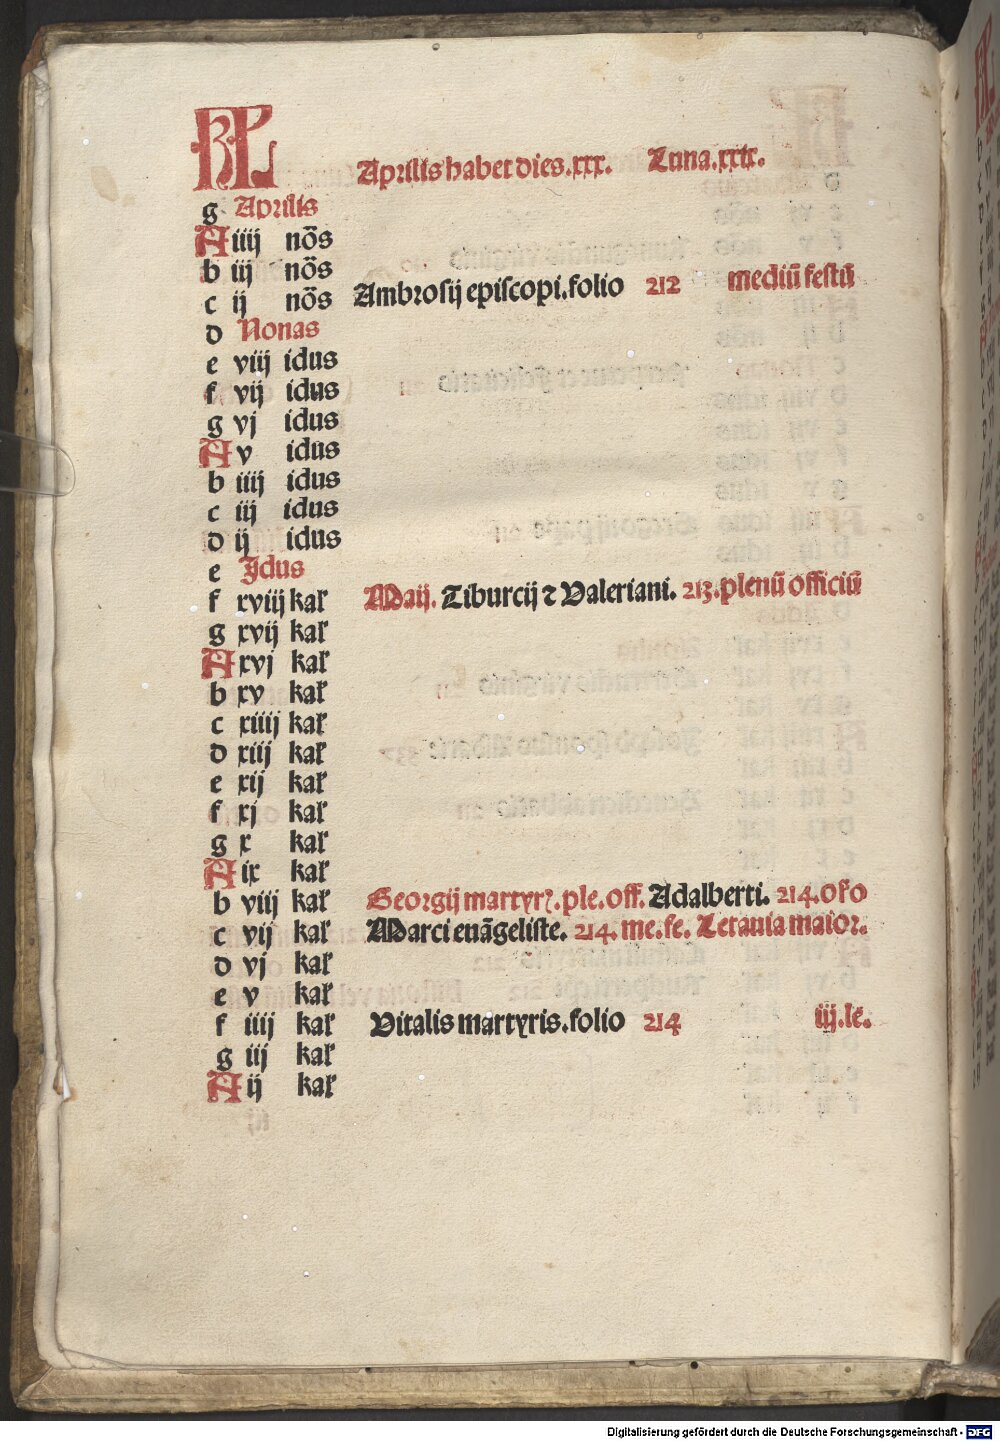 KL Aprilis habet dies.xxx. Luna.xxix.
g Aprilis
A iiij nōs
b iij nōs
c ij nōs Ambrosij episcopi.folio 212 mediū festū
d Nonas
e viij idus
f vij idus
g vj idus
A v idus
b iiij idus
c iij idus
d ij idus
e Jdus
f xviij kal' Maij. Tiburcij ⁊ Valeriani. 213.plenū officiū
g xvij kal'
A xvj kal'
b xv kal'
c xiiij kal'
d xiij kal'
e xij kal'
f xj kal'
g x kal'
A ix kal'
b viij kal' Georgij martyrꝝ.ple.off. Adalberti. 214.o fo
c vij kal' Marci euāgeliste. 214. me.fe. Letania maior.
d vj kal'
e v kal'
f iiij kal' Vitalis martyris.folio 214 iij.le.
g iij kal'
A ij kal'
Digitalisierung gefördert durch die Deutsche Forschungsgemeinschaft - DFG